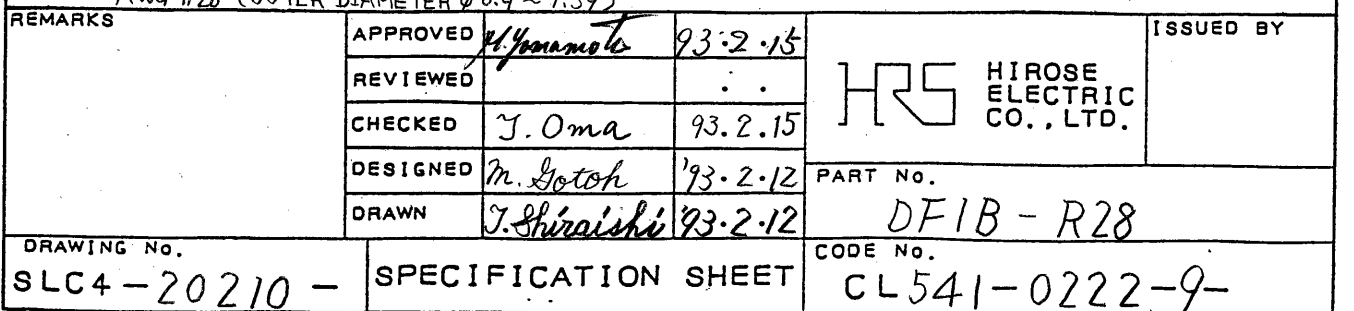 AWG #28 (OUTER DIAMETER φ
REMARKS
APPROVED H. Yamamoto 93.2.15
REVIEWED . .
CHECKED T. Oma 93.2.15
DESIGNED M. Gotoh '93.2.12
DRAWN T. Shiraishi '93.2.12
HRS HIROSE
ELECTRIC
CO.,LTD.
ISSUED BY
PART No.
DF1B - R28
DRAWING No.
SLC4-20210-
SPECIFICATION SHEET
CODE No.
CL541-0222-9-